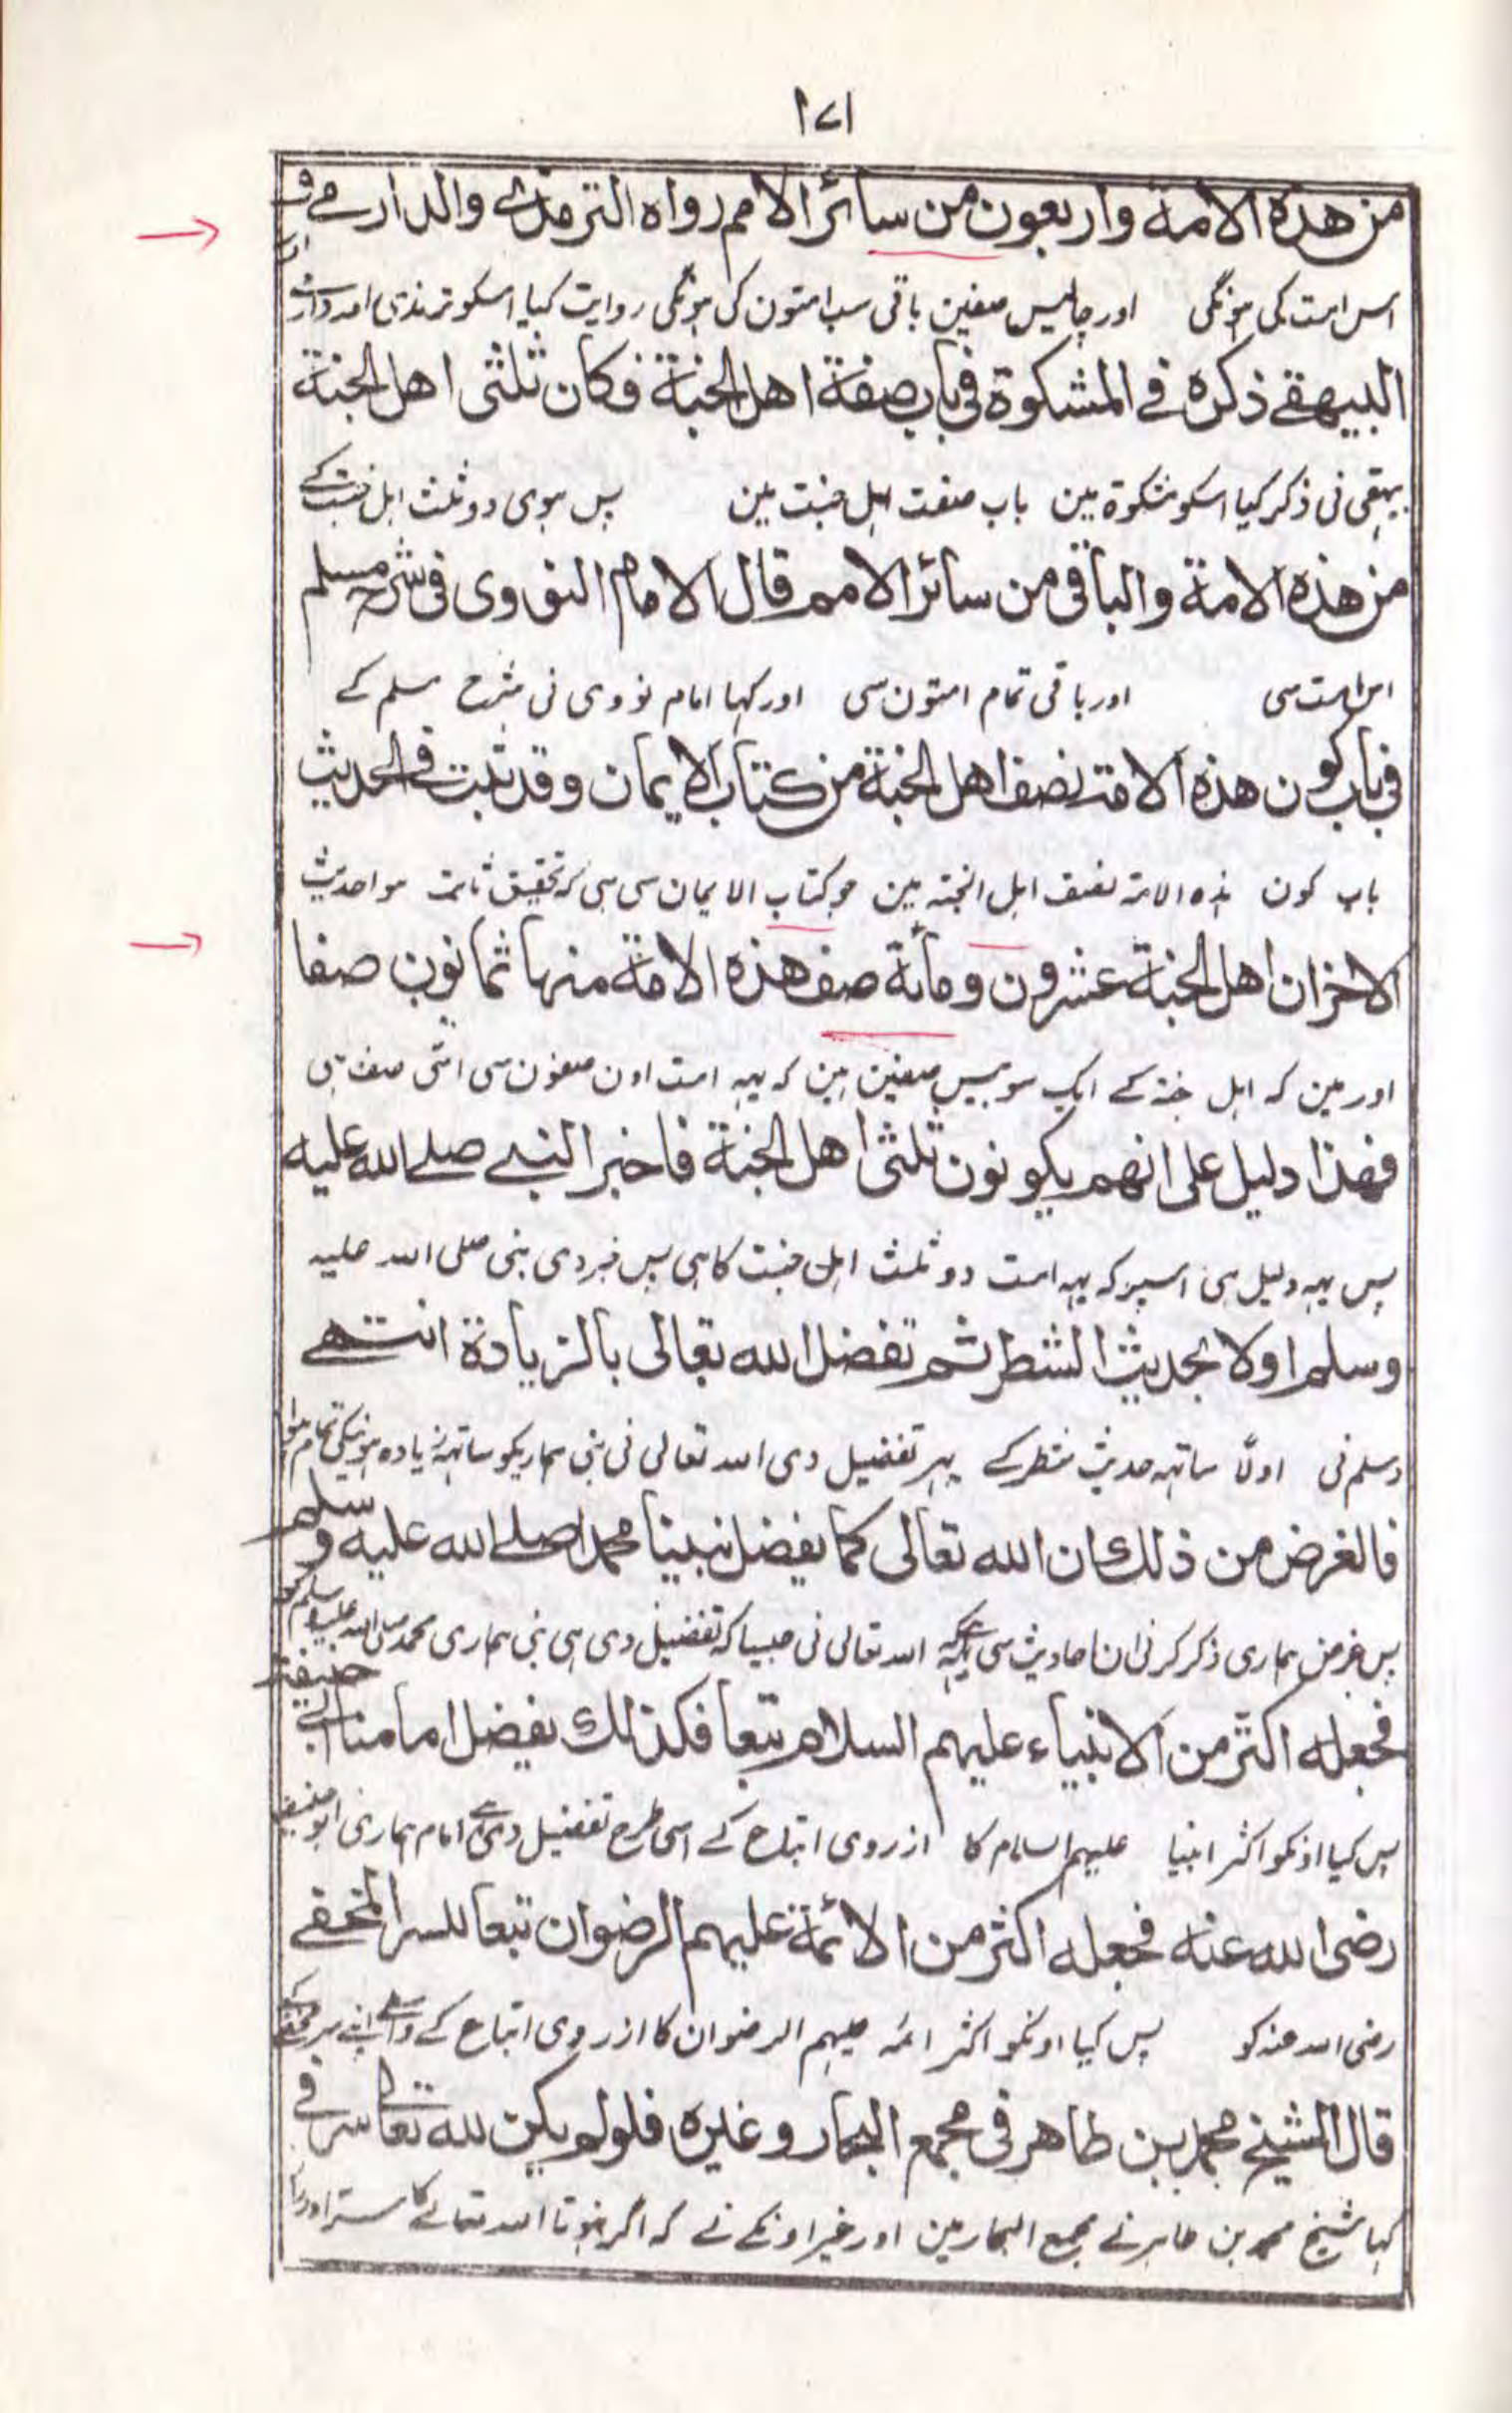 ۱۷۱
من هذه الامة واربعون من سائر الامم رواه الترمذي والدارمي و
اس امت کی ہونگی اور چالیس صفین باقی سب امتون کی ہونگی روایت کیا اسکو ترمذی اور دارمی
البيهقے ذكره في المشكوة في باب صفة اهل الجنة فكان ثلثی اهل الجنة
بیہقی نی ذکر کیا اسکو مشکوۃ مین باب صفت اہل جنت مین پس ہوی دو ثلث اہل جنت کے
من هذه الامة والباقی من سائر الامم قال الامام النووی فی شرح مسلم
اس امت سی اور باقی تمام امتون سی اور کہا امام نووی نی شرح مسلم کے
فی باب كون هذه الامة نصف اهل الجنة من كتاب الايمان وقد ثبت فی الحديث
باب کون ہذہ الامۃ نصف اہل الجنۃ مین جو کتاب الایمان سی ہی کہ تحقیق ثابت ہوا حدیث
الاخر ان اهل الجنة عشرون ومأئة صف هذه الامة منها ثمانون صفا
اور مین کہ اہل جنۃ کے ایک سو بیس صفین ہین کہ یہہ امت اون صفون سی اسّی صف ہی
فهذا دليل على انهم يكونون ثلثى اهل الجنة فاخبر النبے صلے الله عليه
پس یہہ دلیل ہی اسپر کہ یہہ امت دو ثلث اہل جنت کا ہی پس خبر دی نبی صلی اللہ علیہ
وسلم اولا بحديث الشطر ثم تفضل الله تعالى بالزيادة انتهے
وسلم نی اولًا ساتہہ حدیث شطر کے پہر تفضیل دی اللہ تعالی نی نبی ہماریکو ساتہہ زیادہ ہونیکی تمام ہوا
فالغرض من ذلك ان الله تعالى كما يفضل نبينا محمدا صلے الله عليه وسلم
پس غرض ہماری ذکر کرنی ان احادیث سی یہ ہے کہ اللہ تعالی نی جیسا کہ تفضیل دی ہی نبی ہماری محمد صلی اللہ علیہ وسلم کو
فجعله اكثر من الانبياء عليهم السلام تبعا فكذلك يفضل امامنا ابی حنيفة
پس کیا اونکو اکثر انبیا علیہم السلام کا از روی اتباع کے اسی طرح تفضیل دی ہے امام ہماری ابو حنیفہ
رضى الله عنه فجعله اكثر من الائمة عليهم الرضوان تبعا للسر المخفے
رضی اللہ عنہ کو پس کیا اونکو اکثر ائمہ علیہم الرضوان کا از روی اتباع کے واسطے اپنے سر مخفی کے
قال الشيخ محمد بن طاهر فی مجمع البحار وغيره فلولم يكن لله تعالى سر فی
کہا شیخ محمد بن طاہر نے مجمع البحار مین اور غیر اونکے نے کہ اگر نہوتا اللہ تعالے کا سر اور